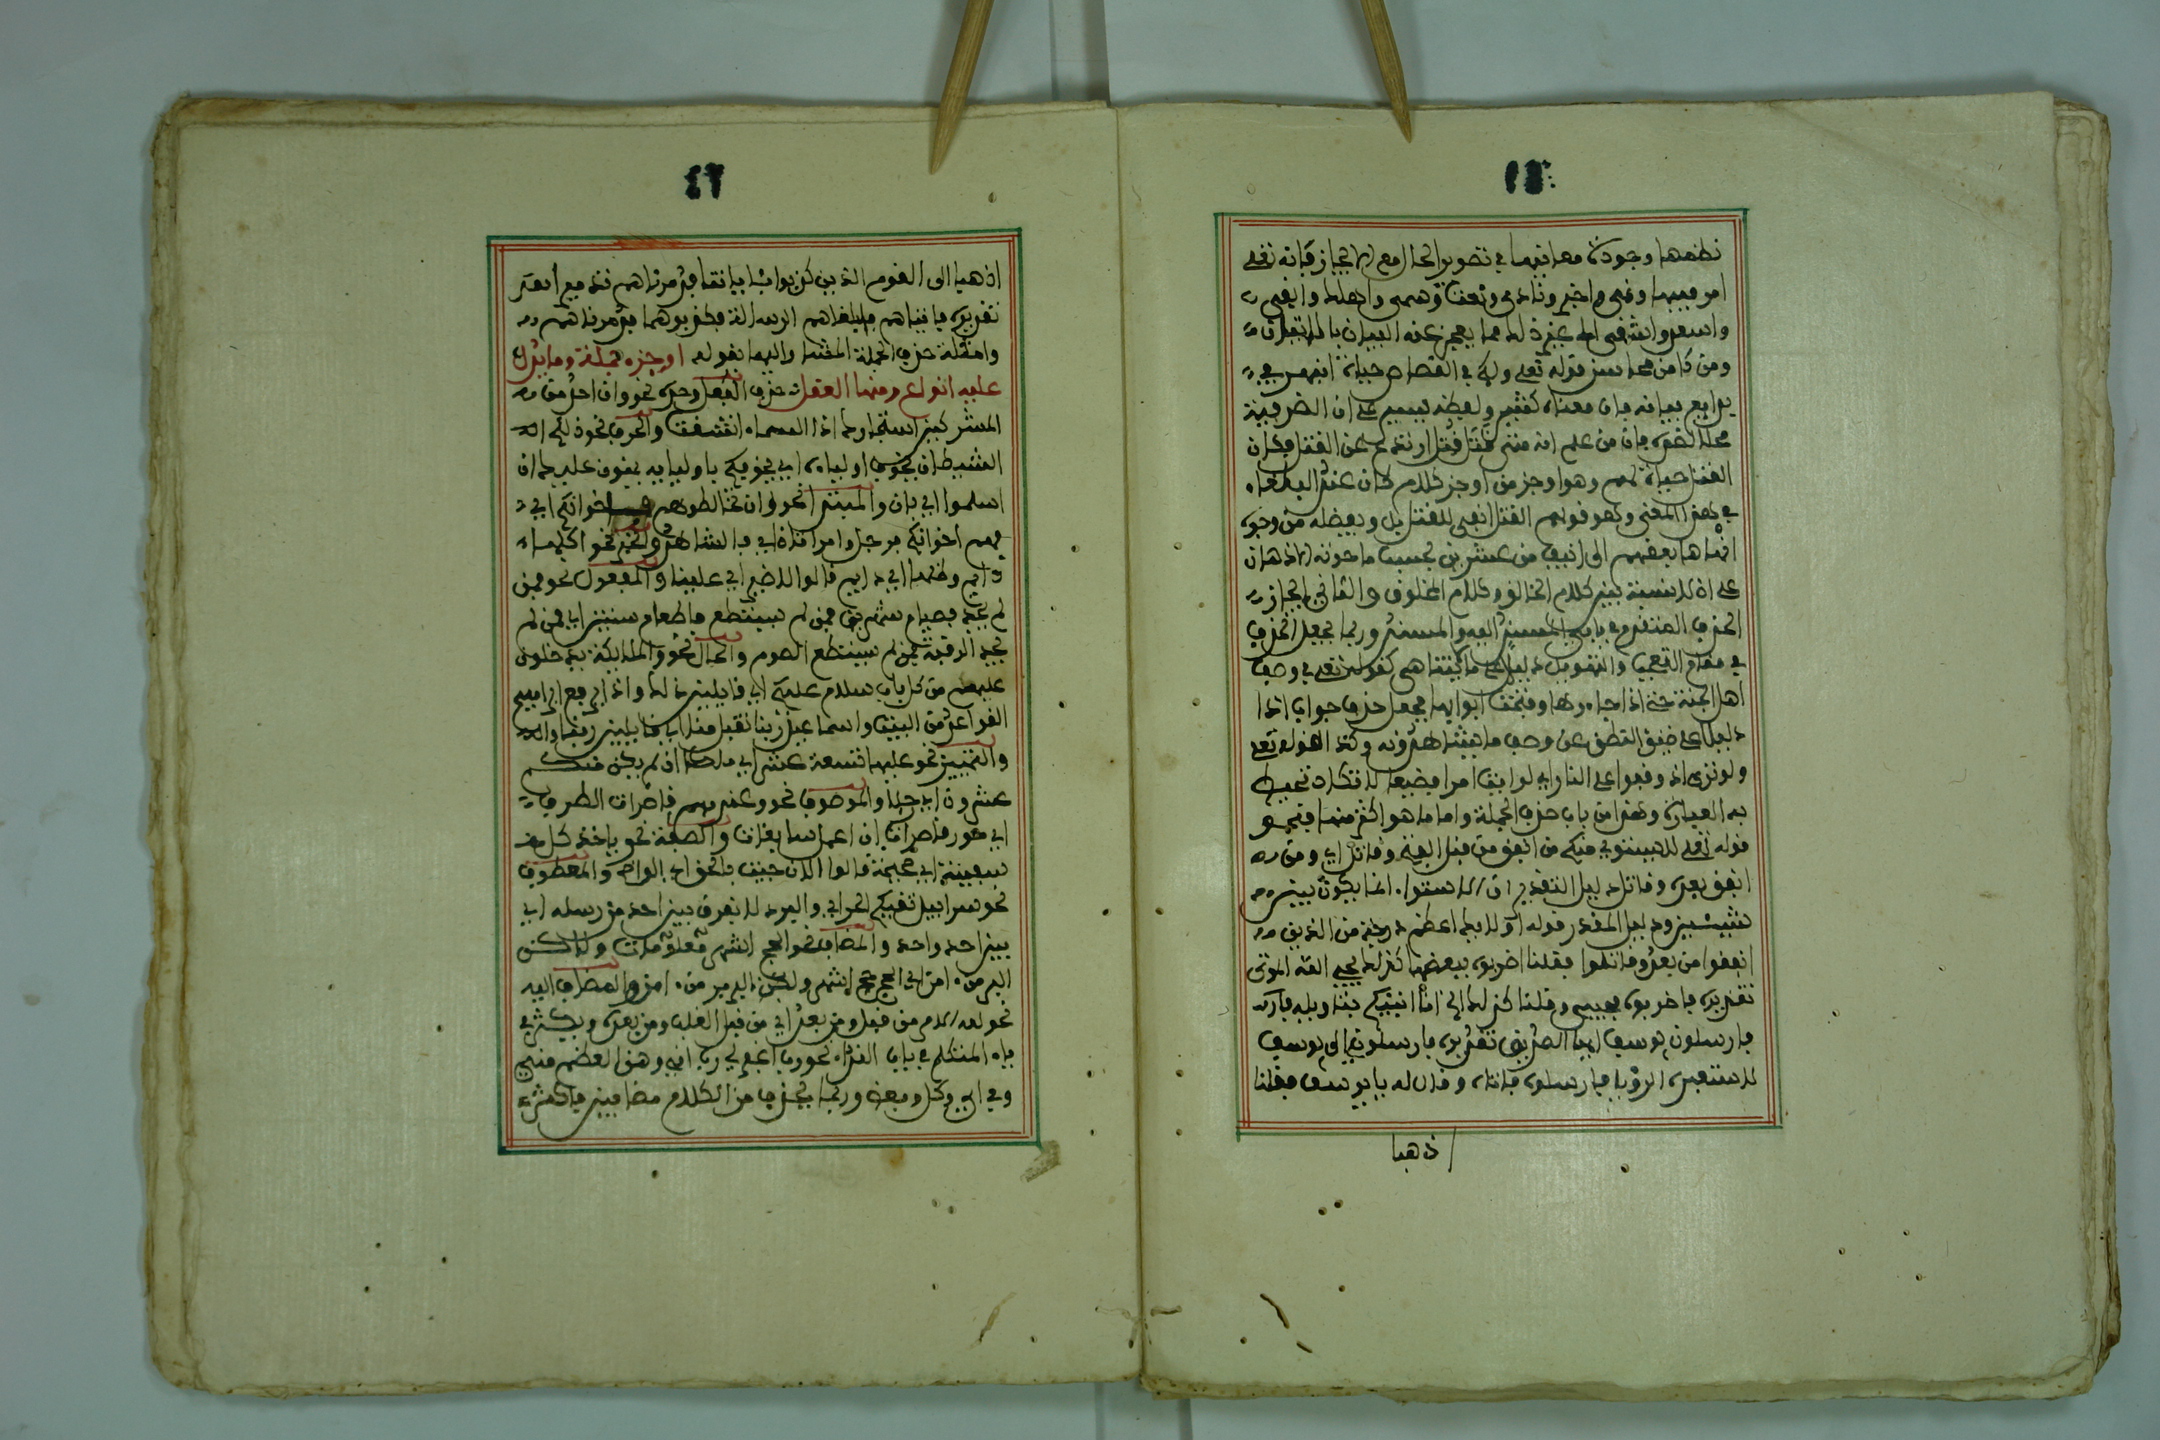 نظمها وجودة معانيها في تصوير الحال مع الايجاز فانه تعلى
امر فيها ونهى واخبر ونادى ونعت وسمى واهلك وابقى
واسعد واشقى الى غير ذلك مما يعجز عنه البيان بالملتقيان
ومن كامن محاسن قوله تعلى ولكم في القصاص حياة انبهر في
بدايع بيانه فان معناه كثير ولفظه يسير على ان الضرفية
محل الضر فان من علم انه متى قتل قتل ارتدع عن القتل فكان
القتل حياة لهم وهو اوجز من اوجز كلام كان عند البلغاء
في هذا المعنى وهو قولهم القتل انفى للقتل بل ويفضله من وجوه
انهاها بعضهم الى نيف من عشرين بحسب ما حوته الاذهان
على ان لا نسبة بين كلام الخالق وكلام المخلوق والثاني ايجاز
الحذف المتقدم في بابي المسند اليه والمسند وربما يجعل الحذف
في مقام التعجب والتهويل دليلا على ما لا يتناهى كقوله تعلى في وصف
اهل الجنة حتى اذا جاءوها وفتحت ابوابها فجعل حذف جواب اذا
دليلا على ضيق النطق عن وصف ما يشاهدونه وكذا قوله تعلى
ولو ترى اذ وقفوا على النار اي لرايت امرا فضيعا لا تكاد تحيط
به العبارة وهذا من باب حذف الجملة واما ما هو اكثر منها فنحو
قوله تعلى لا يستوي منكم من انفق من قبل الفتح وقاتل اي ومن
انفق بعده وقاتل دليل التقدير ان الاستواء انما يكون بين
شيئين ودليل المقدر قوله اولايك اعظم درجة من الذين
انفقوا من بعد وقاتلوا فقلنا اضربوه ببعضها كذلك يحيي الله الموتى
تقديره فاضربوه فحيي وقلنا كذلك الخ انا انبيكم بتاويله فارسلون
فارسلون يوسف ايها الصديق تقديره فارسلون الى يوسف
لاستعبره الرؤيا فارسلوه فاتاه وقال له يا يوسف فقلنا
اذهبا
٤٢
اذهبا الى القوم الذين كذبوا باياتنا فدمرناهم تدميرا
تقديره فاتياهم فابلغاهم الرسالة فكذبوهما فدمرناهم
وامثلة حذف الجملة المشار اليها بقوله اوجزء جملة وما يدل
عليه انواع ومنها العقل حذف الفعل وحده نحو وان احد من
المشركين استجارك اذا السماء انشقت والحرف نحو ذلكم
الشيطان يخوف اولياءه اي يخوفكم باوليايه يمنون عليك ان
اسلموا اي بان والمبتدا نحو وان تخالطوهم فاخوانكم اي
فهم اخوانكم فرجل وامراتان اي فالشاهد والخبر نحو اكلها
دايم وظلها اي دايم قالوا لا ضير اي علينا والمفعول نحو فمن
لم يجد فصيام شهرين فمن لم يستطع فاطعام ستين اي فمن لم
يجد الرقبة فمن لم يستطع الصوم والحال نحو والملايكة يدخلون
عليهم من كل باب سلام عليكم اي قايلين ذلك واذ يرفع ابراهيم
القواعد من البيت واسماعيل ربنا تقبل منا اي قايلين ربنا
والتمييز نحو عليها تسعة عشر اي ملكا ان يكن منكم
عشرون اي رجلا والموصوف نحو وعندهم قاصرات الطرف
اي حور قاصرات ان اعمل سابغات والصفة نحو ياخذ كل
سفينة اي صحيحة قالوا الان جيت بالحق اي الواضح والمعطوف
نحو سرابيل تقيكم الحر اي والبرد لا نفرق بين احد من رسله اي
بين احد واحد والمضاف نحو الحج اشهر معلومات ولكن
البر من امن اي الحج حج اشهر ولكن البر بر من امن والمضاف اليه
نحو لله الامر من قبل ومن بعد اي من قبل الغلب ومن بعده ويكثر في
ياء المتكلم في باب النداء نحو رب اغفر لي رب اني وهن العظم مني
وفي اي وكل وبعض وربما يحذف من الكلام مضافين فاكثر